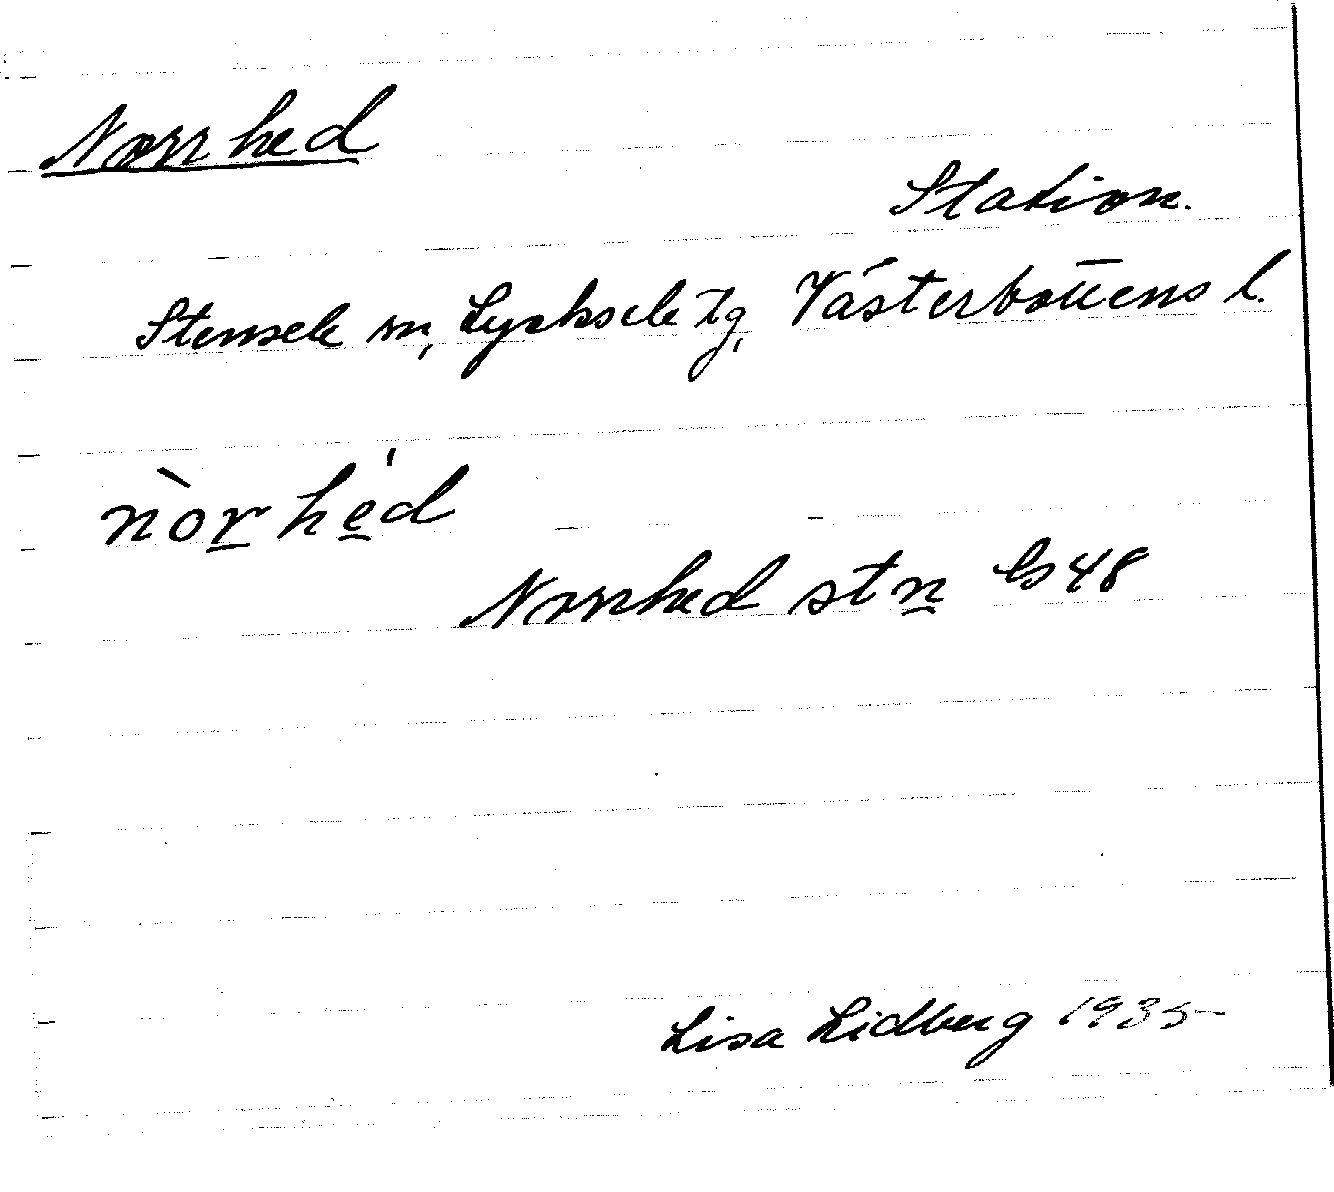 Norrhed
Station.
Stensele sn, Lycksele tg, Västerbottens l.
nòrhe̱'d
Norrhed stn Gs 48
Lisa Lidberg 1935